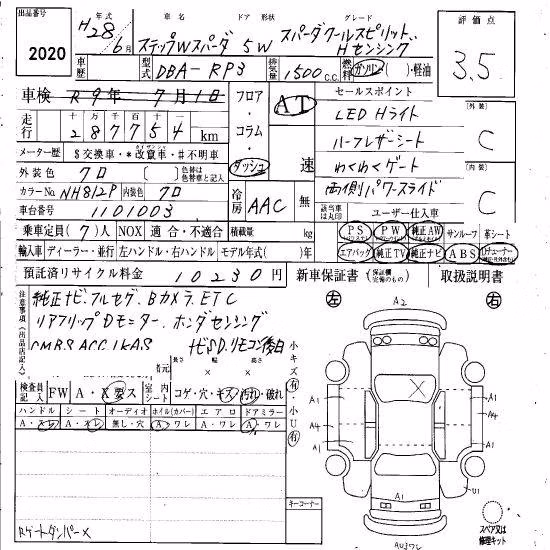 出品番号 2020
年式 H28/6月 車名 ステップWスパーダ ドア形状 5W グレード スパーダクールスピリット Hセンシング 評価点 3.5
車歴 型式 DBA-RP3 排気量 1500 C.C. 燃料 ガソリン( )・軽油
車検 R9年 7月1日 フロア・コラム・ダッシュ AT 速 セールスポイント
走行 十万千百十一 287754 km LEDHライト 【外装】 C
メーター歴 $交換車・*改竄車・#不明車 ハーフレザーシート
外装色 クロ 〔 〕 色替は色替車と記入 わくわくゲート 【内装】 C
カラーNo. NH812P 内装色 クロ 冷房 AAC 無 両側パワースライド
車台番号 1101003 該当車は丸印 ユーザー仕入車
乗車定員( 7 )人 NOX 適合・不適合 積載量 kg PS PW 純正AW サンルーフ 革シート
輸入車 ディーラー・並行 左ハンドル・右ハンドル モデル年式( )年 エアバッグ 純正TV 純正ナビ ABS
預託済リサイクル料金 10230円 新車保証書 (保証欄完備のもの) 取扱説明書
注意事項(出品店記入)
純正ナビ.フルセグ.Bカメラ.ETC
リアフリップDモニター.ホンダセンシング
CMBS ACC LKAS ナビSD.リモコン後日
長さ 幅 高さ
小キズ有・小U有
検査員記入 FW A・X要ス 室内シート コゲ・穴・キズ・汚れ・破れ
ハンドル シート オーディオ ホイル(カバー) エアロ ドアミラー
A・スレ A・スレ 無し・穴 A・ワレ A・ワレ A・ワレ
Rゲートダンパー×
キーコーナー
左 右
A2
X
A1 A1
A4 A4
A1 A1
A1
U1
AU3ワレ
スペア又は修理キット